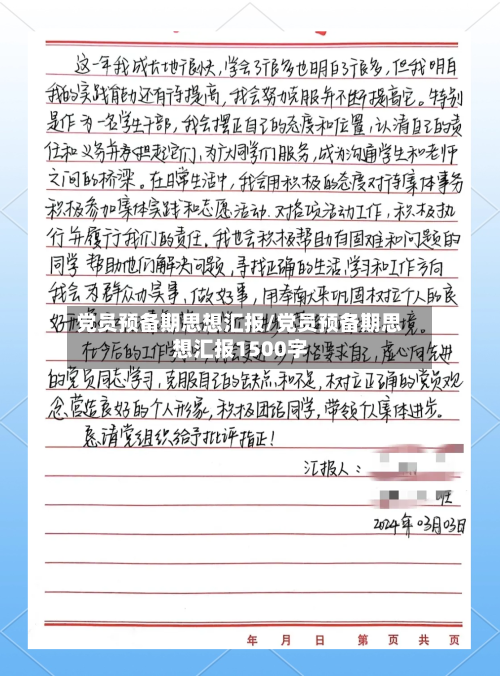 这一年我成长地很快，学会了很多也明白了很多，但我明白
我的实践能力还有待提高，我会努力克服并不断提高它。特别
是作为一名学生干部，我会摆正自己的态度和位置，认清自己的责
任和义务并承担起它们，为广大同学们服务，成为沟通学生和老师
之间的桥梁。在日常生活中，我会用积极的态度对待集体事务
积极参加集体实践和志愿活动，对各项活动工作，积极执
行并履行我们的责任，我也会积极帮助有困难和问题的
同学 帮助他们解决问题，寻找正确的生活、学习和工作方向
我会为群众办实事，做好事，用奉献来巩固树立个人的良
好
境。
党员预备期思想汇报/党员预备期思
想汇报1500字
在今后的工作
格要求自己，虚心向先进
的党员同志学习，克服自己的缺点和不足，树立正确的党员观
念，营造良好的个人形象，积极团结同学，带领个人集体进步。
恳请党组织给予批评指正！
汇报人：
班
2024年03月03日
年 月 日 第 页 共 页